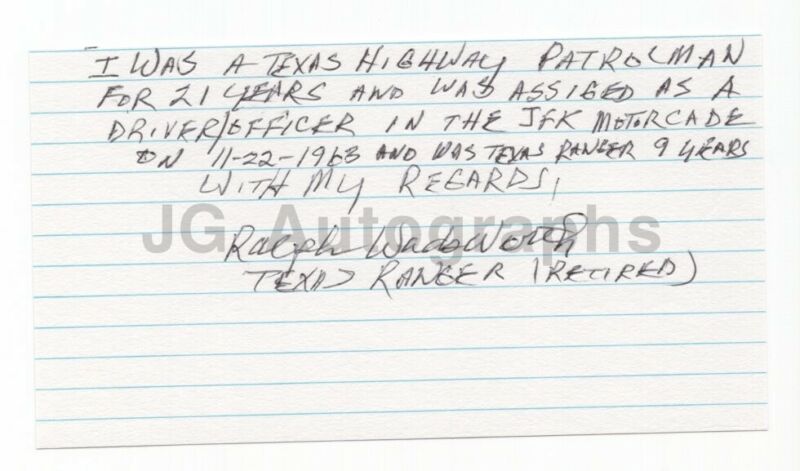 I WAS A TEXAS HIGHWAY PATROLMAN
FOR 21 YEARS AND WAS ASSIGED AS A
DRIVER/OFFICER IN THE JFK MOTORCADE
ON 11-22-1963 AND WAS TEXAS RANGER 9 YEARS
WITH MY REGARDS,
JG Autographs
Ralph Wadsworth
TEXAS RANGER (RETIRED)